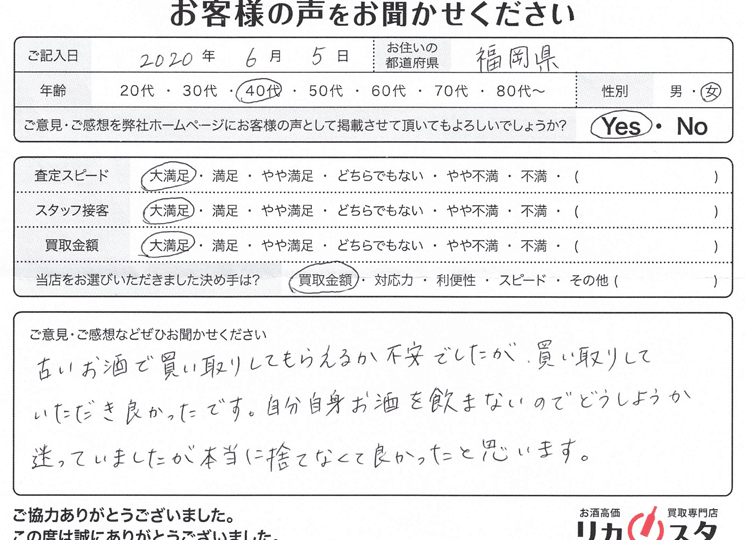 お客様の声をお聞かせください
ご記入日 2020 年 6 月 5 日 お住いの都道府県 福岡県
年齢 20代 ・ 30代 ・ 40代 ・ 50代 ・ 60代 ・ 70代 ・ 80代〜 性別 男 ・ 女
ご意見・ご感想を弊社ホームページにお客様の声として掲載させて頂いてもよろしいでしょうか? Yes ・ No
査定スピード 大満足 ・ 満足 ・ やや満足 ・ どちらでもない ・ やや不満 ・ 不満 ・ ( )
スタッフ接客 大満足 ・ 満足 ・ やや満足 ・ どちらでもない ・ やや不満 ・ 不満 ・ ( )
買取金額 大満足 ・ 満足 ・ やや満足 ・ どちらでもない ・ やや不満 ・ 不満 ・ ( )
当店をお選びいただきました決め手は? 買取金額 ・ 対応力 ・ 利便性 ・ スピード ・ その他 ( )
ご意見・ご感想などぜひお聞かせください
古いお酒で買い取りしてもらえるか不安でしたが、買い取りして
いただき良かったです。自分自身お酒を飲まないのでどうしようか
迷っていましたが本当に捨てなくて良かったと思います。
ご協力ありがとうございました。
この度は誠にありがとうございました。
お酒高価 買取専門店
リカスタ